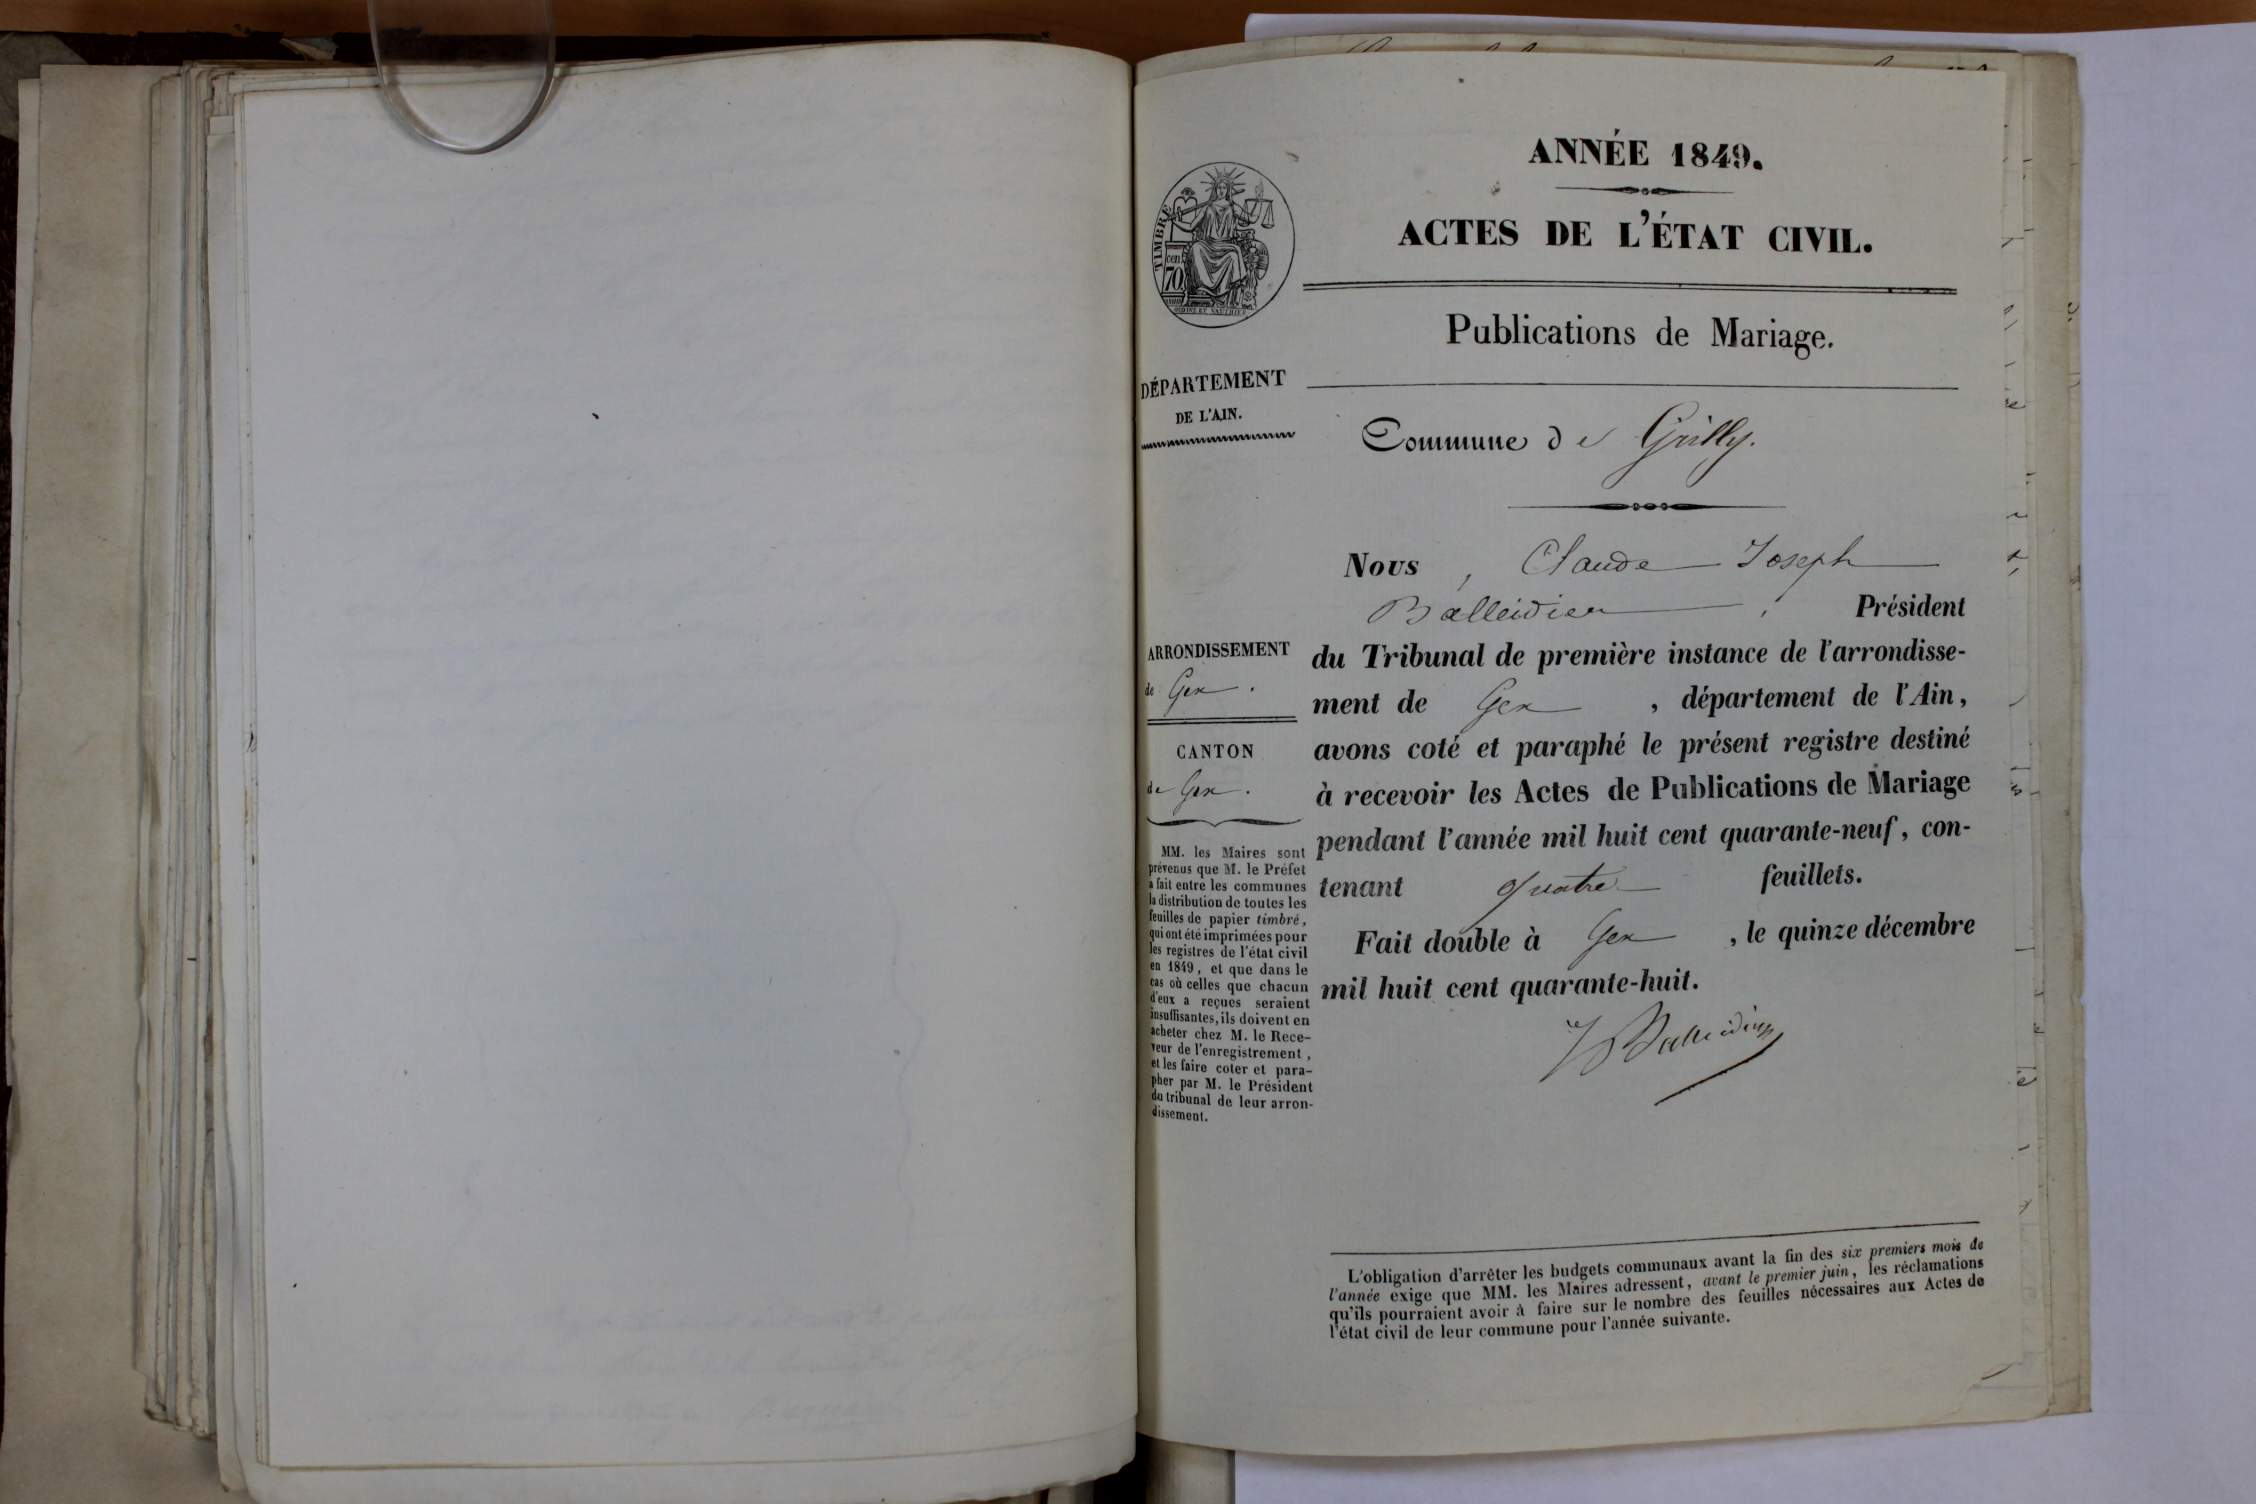 ANNÉE 1849.
ACTES DE L'ÉTAT CIVIL.
Publications de Mariage.
TIMBRE
cen.
70
DÉPARTEMENT
DE L'AIN.
Commune de Grilly.
Nous, Claude Joseph
Balleidier, Président
du Tribunal de première instance de l'arrondisse-
ment de Gex, département de l'Ain,
avons coté et paraphé le présent registre destiné
à recevoir les Actes de Publications de Mariage
pendant l'année mil huit cent quarante-neuf, con-
tenant quatre feuillets.
Fait double à Gex, le quinze décembre
mil huit cent quarante-huit.
Balleidier
ARRONDISSEMENT
de Gex.
CANTON
de Gex.
MM. les Maires sont
prévenus que M. le Préfet
a fait entre les communes
la distribution de toutes les
feuilles de papier timbré,
qui ont été imprimées pour
les registres de l'état civil
en 1849, et que dans le
cas où celles que chacun
d'eux a reçues seraient
insuffisantes, ils doivent en
acheter chez M. le Rece-
veur de l'enregistrement,
et les faire coter et para-
pher par M. le Président
du tribunal de leur arron-
dissement.
L'obligation d'arrêter les budgets communaux avant la fin des six premiers mois de
l'année exige que MM. les Maires adressent, avant le premier juin, les réclamations
qu'ils pourraient avoir à faire sur le nombre des feuilles nécessaires aux Actes de
l'état civil de leur commune pour l'année suivante.